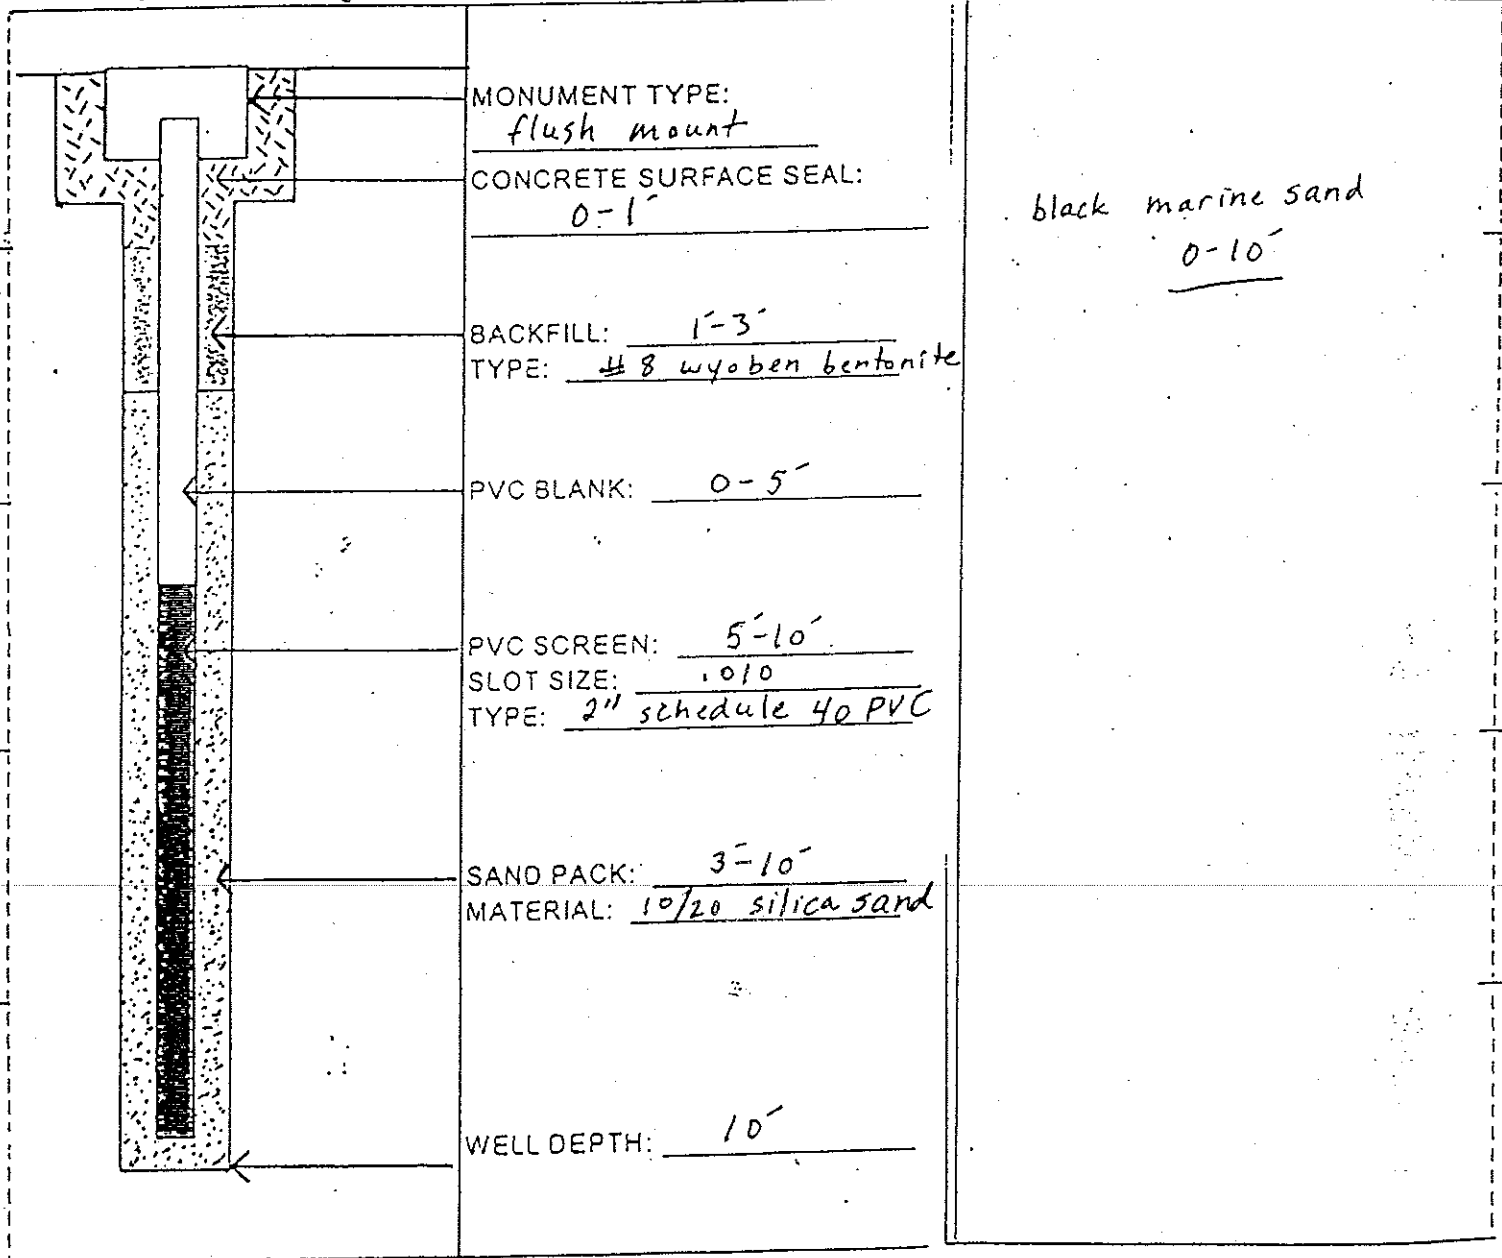 MONUMENT TYPE:
flush mount
CONCRETE SURFACE SEAL:
0-1'
BACKFILL: 1'-3'
TYPE: #8 wyoben bentonite
PVC BLANK: 0-5'
PVC SCREEN: 5'-10'
SLOT SIZE: .010
TYPE: 2" schedule 40 PVC
SAND PACK: 3'-10'
MATERIAL: 10/20 silica sand
WELL DEPTH: 10'
black marine sand
0-10'